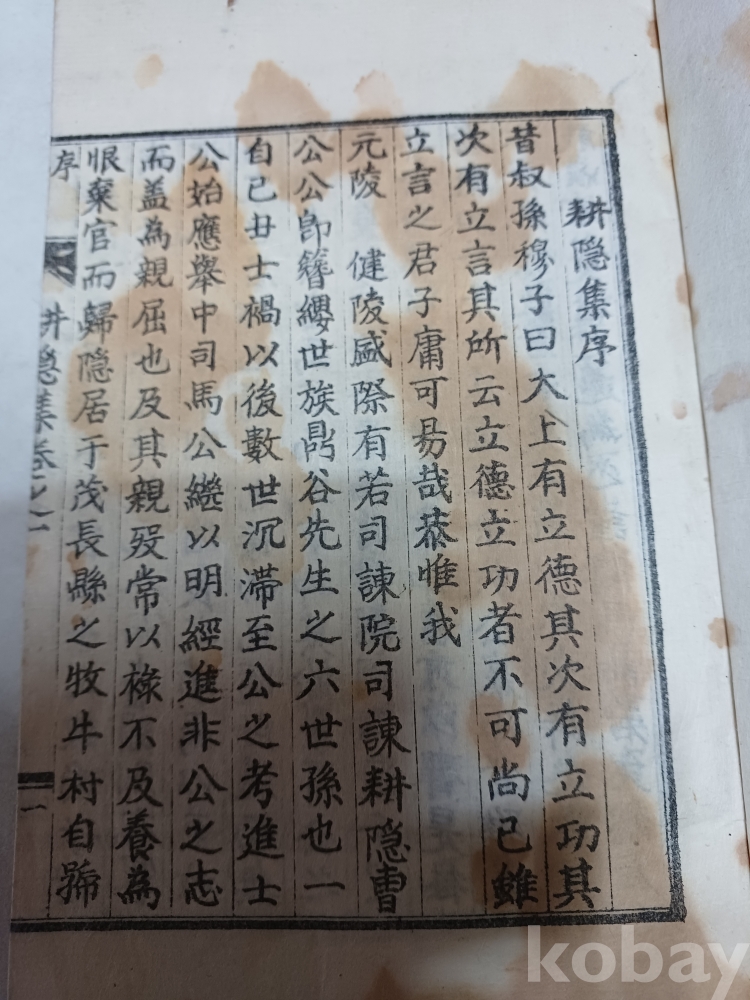 耕隐集序
昔叔孫穆子曰大上有立德其次有立功其
次有立言其所云立德立功者不可尚已雖
立言之君子庸可易哉恭惟我
元陵 健陵盛際有若司諫院司諫耕隐曺
公公即簪纓世族鼎谷先生之六世孫也一
自己丑士禍以後數世沉滞至公之考進士
公始應舉中司馬公繼以明經進非公之志
而盖為親屈也及其親歿常以祿不及養為
恨棄官而歸隐居于茂長縣之牧牛村自號
序
耕隐集卷之一
一
kobay